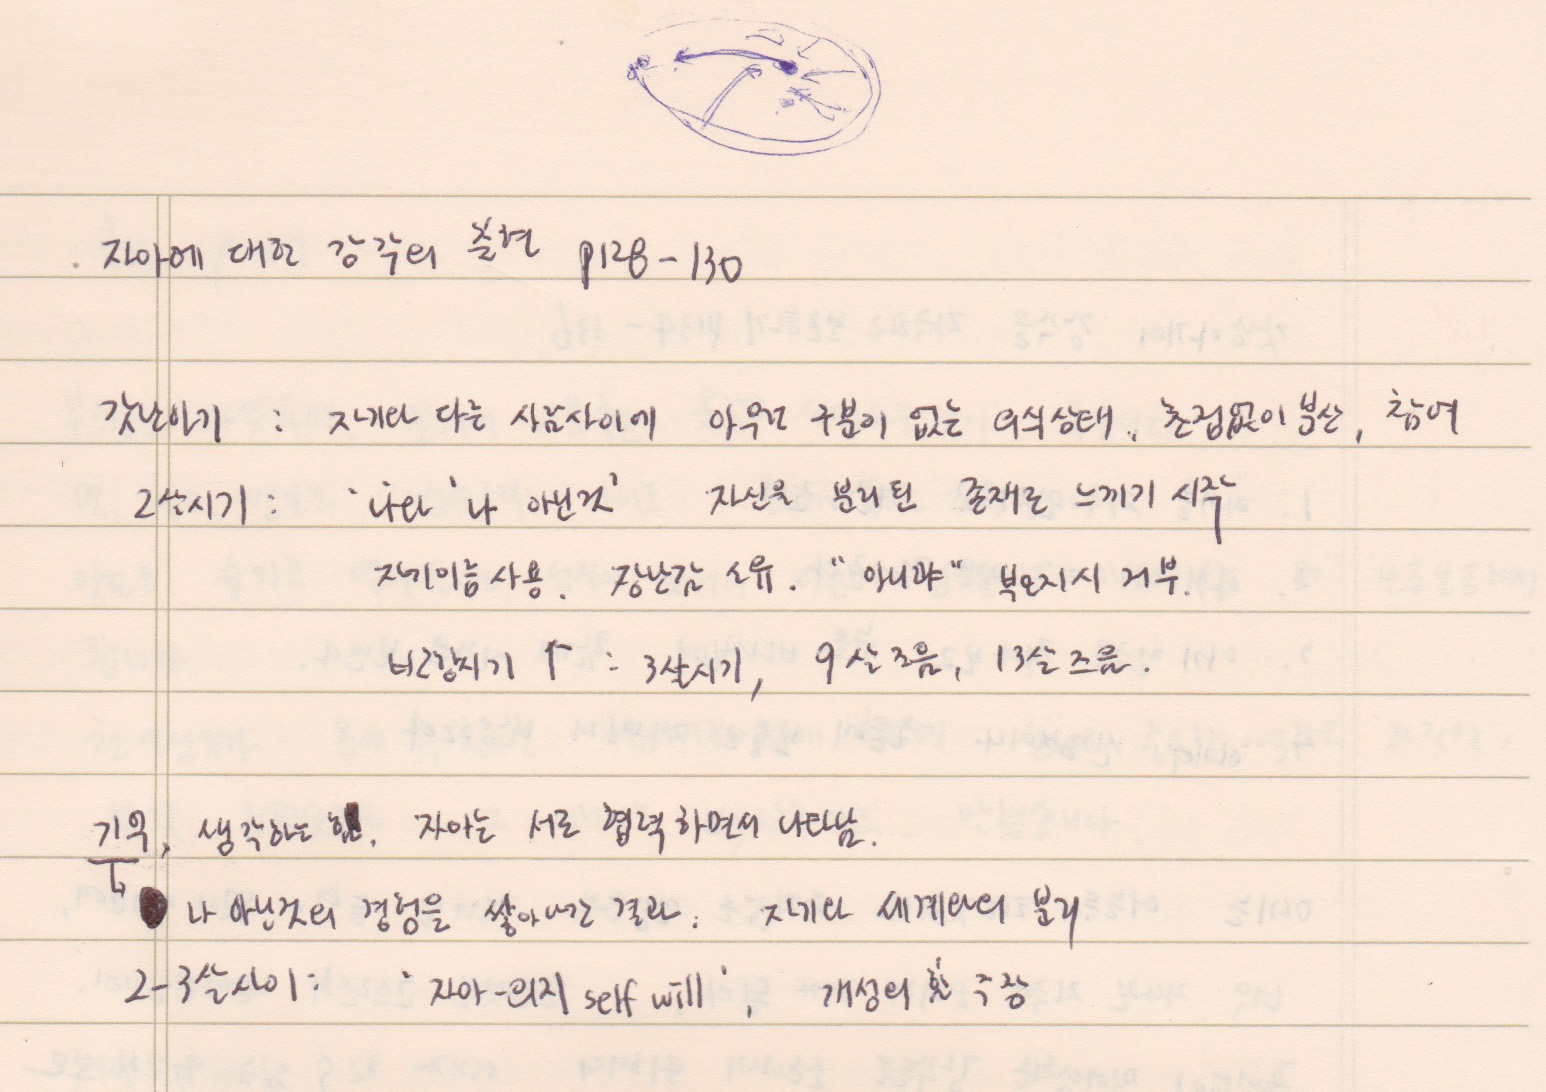 자아에 대한 감각의 출현 p128-130
갓난아기 : 자기와 다른 사람사이에 아무런 구분이 없는 의식상태, 초점없이 분산, 참여
2살시기 : '나'와 '나 아닌것' 자신을 분리된 존재로 느끼기 시작
자기이름사용. 장난감 소유. "아니야" 부모지시 거부.
건강시기 ↑ : 3살시기, 9살즈음, 13살즈음.
기억, 생각하는 힘, 자아는 서로 협력하면서 나타남.
나 아닌것의 경험을 쌓아가는 결과. 자기와 세계와의 분리
2-3살사이 : '자아-의지 self will', 개성의 첫 주장